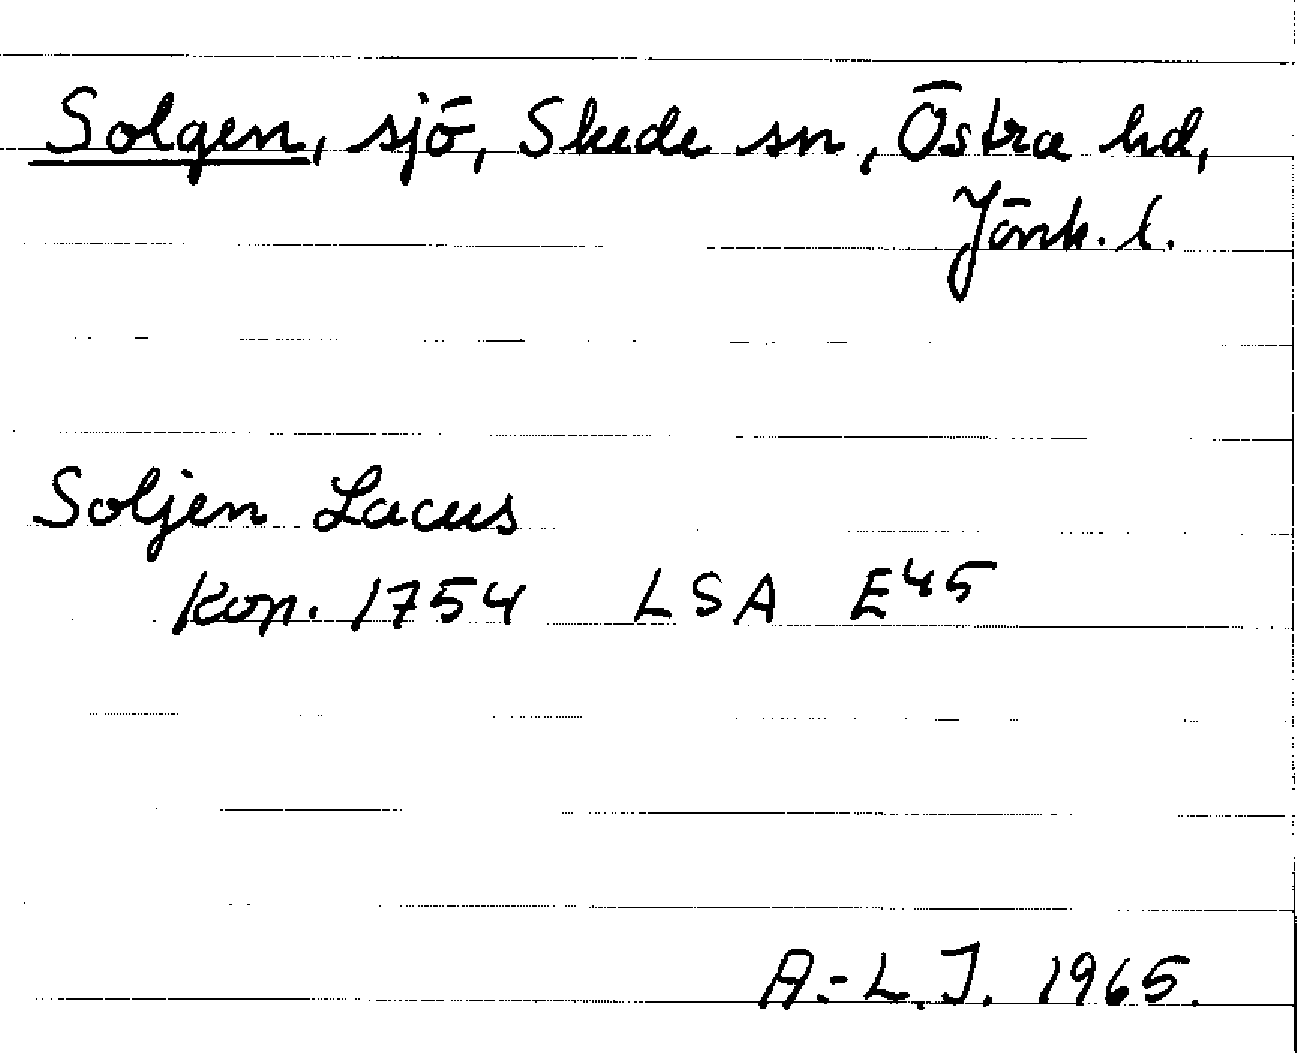 Solgen, sjö, Skede sn, Östra hd,
Jönk. l.
Soljen Lacus
Kop. 1754 LSA E45
A.-L. J. 1965.